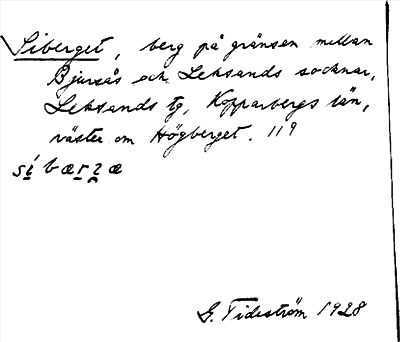 Siberget, berg på gränsen mellan
Bjursås och Leksands socknar,
Leksands tg, Kopparbergs län,
väster om Högberget. 119
G. Tideström 1928